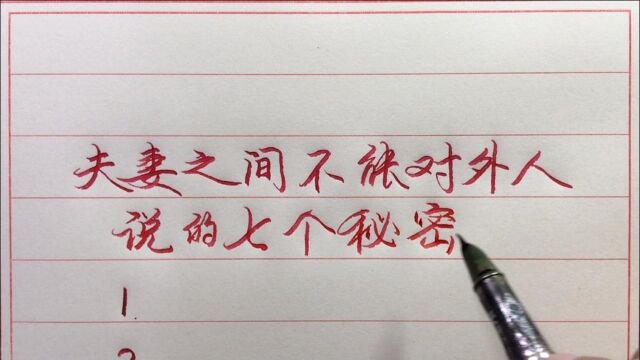 夫妻之间不能对外人
说的七个秘密
1.
2